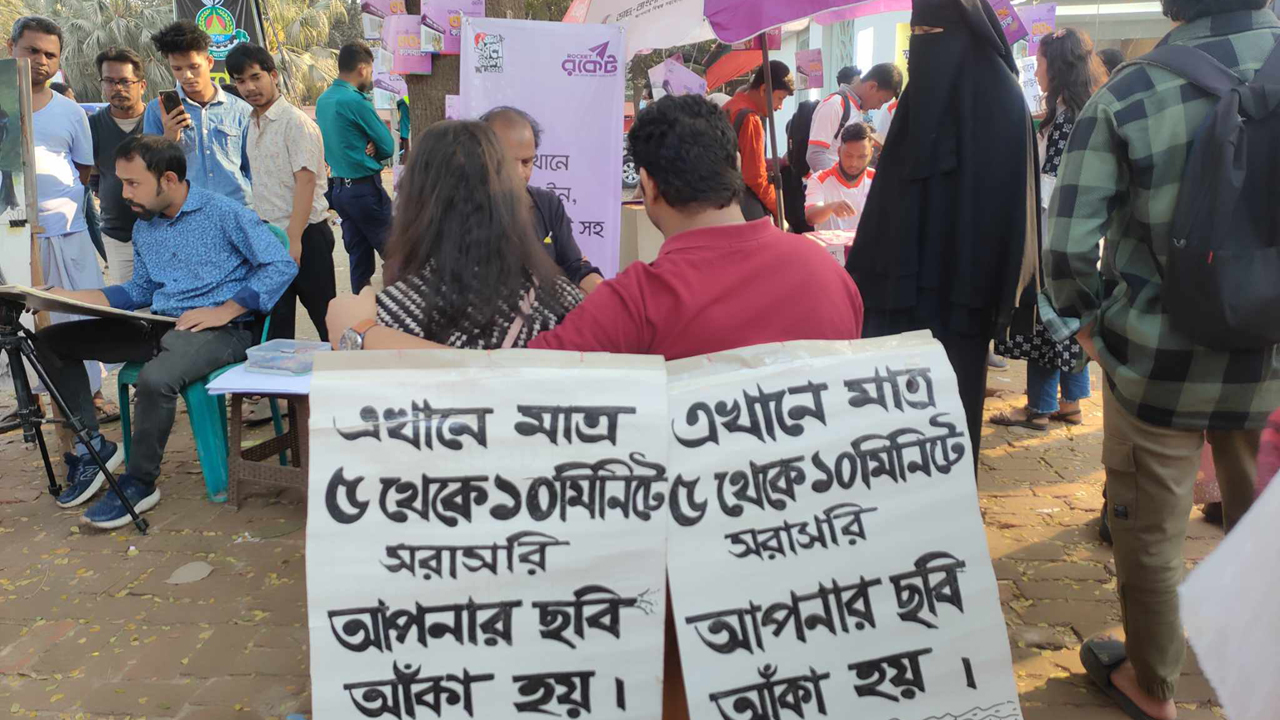 ROCKET
রকেট
সহ
এখানে মাত্র
৫ থেকে ১০ মিনিটে
সরাসরি
আপনার ছবি
আঁকা হয়।
এখানে মাত্র
৫ থেকে ১০ মিনিটে
সরাসরি
আপনার ছবি
আঁকা হয়।